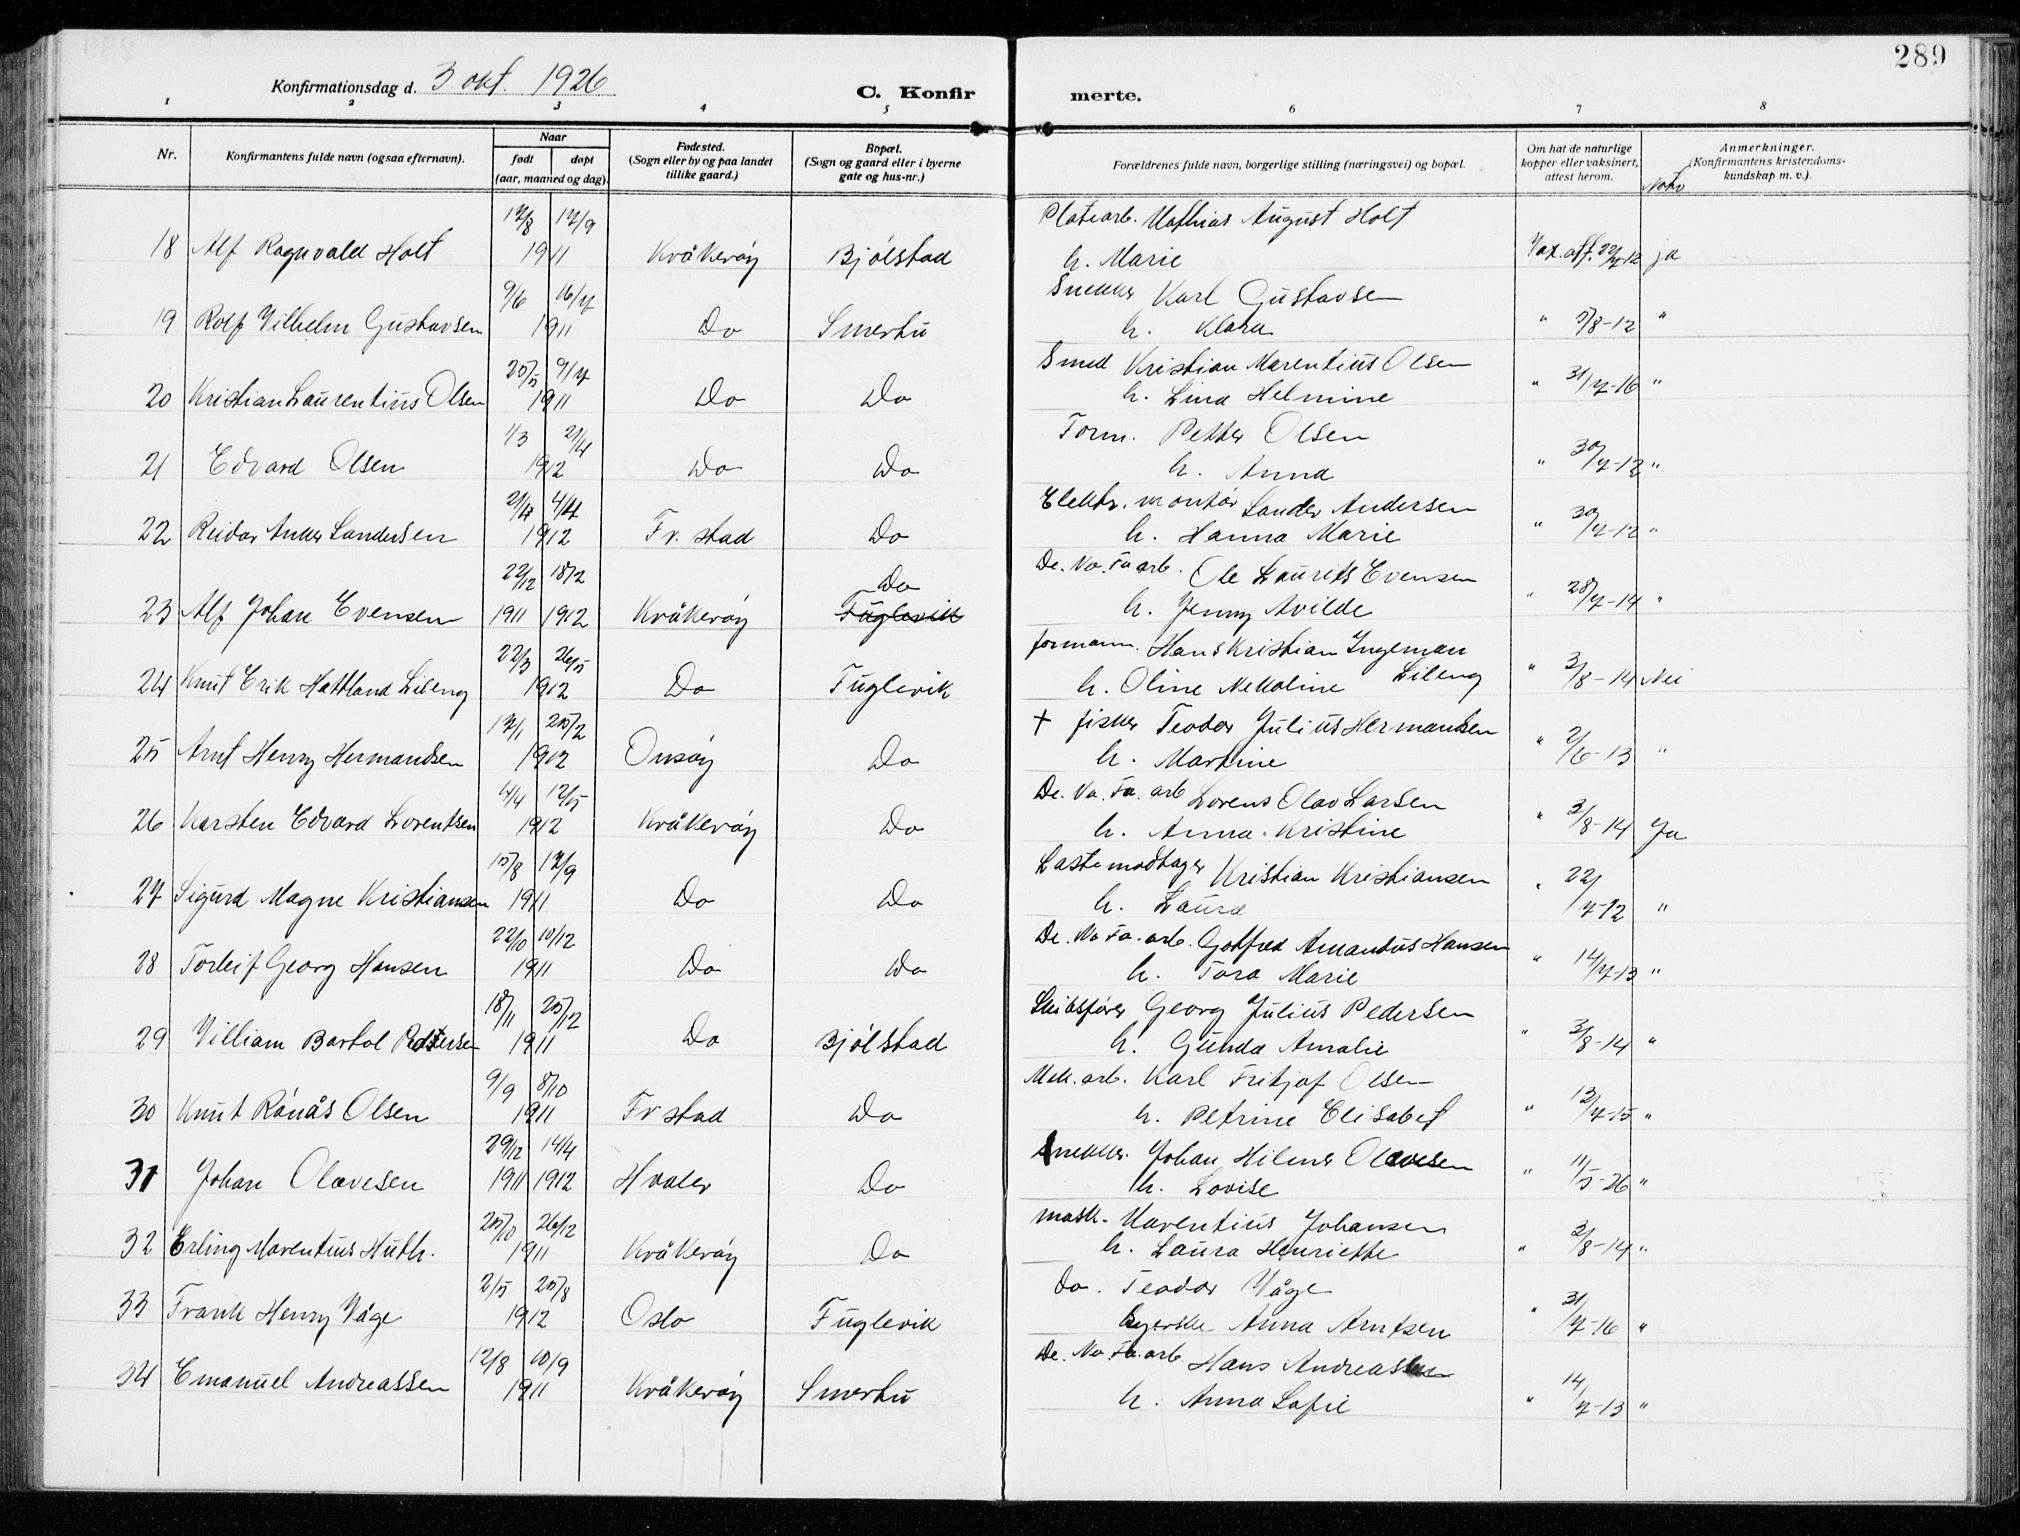 289
Konfirmationsdag d. 3. okt. 1926
C. Konfirmerte.
1 2 3 4 5 6 7 8
Nr.
Konfirmantens fulde navn (ogsaa efternavn).
Naar
født døpt
(aar, maaned og dag).
Fødested.
(Sogn eller by og paa landet
tillike gaard.)
Bopæl.
(Sogn og gaard eller i byerne
gate og hus-nr.)
Forældrenes fulde navn, borgerlige stilling (næringsvei) og bopæl.
Om hat de naturlige
kopper eller vaksinert,
attest herom.
Anmerkninger.
(Konfirmantens kristendoms-
kundskap m. v.).
17/8 17/9 Platearb. Mathias August Holt
18 Alf Ragnvald Holt 1911 Kråkerøy Bjølstad h. Marie Vax. att. 22/7-12 ja
9/6 16/7 Snekker Karl Gustavsen
19 Rolf Vilhelm Gustavsen 1911 Do Smertu h. Klara " 5/8-12 "
25/5 9/7 Smed Kristian Marentius Olsen
20 Kristian Laurentius Olsen 1911 Do Do h. Lina Helmine " 31/7-16 "
1/3 21/4 Form. Petter Olsen
21 Edvard Olsen 1912 Do Do h. Anna " 30/7-12 "
2/4 4/4 Elektr. montør Sander Andersen
22 Reidar Ander Sandersen 1912 Fr. stad Do h. Hanna Marie " 30/7-12 "
22/12 18/2 Do De. No. Fa arb. Ole Laurits Evensen
23 Alf Johan Evensen 1911 1912 Kråkerøy Fuglevik h. Jenny Avilde " 28/7-14 "
22/3 26/5 formann. Hans Kristian Ingeman Lileng
24 Knut Erik Hattland Lileng 1912 Do Fuglevik h. Oline Nekoline " 3/8-14 Nei
17/1 25/2 + fisker Teodor Julius Hermansen
25 Arnt Henry Hermandsen 1912 Onsøy Do h. Martine " 2/6-13 "
4/4 12/5 De. No. Fa. arb Lorens Olav Larsen
26 Karsten Edvard Lorentsen 1912 Kråkerøy Do h. Anna Kristine " 3/8-14 Ja
15/8 17/9 Lastemodtager Kristian Kristiansen
27 Sigurd Magne Kristiansen 1911 Do Do h. Laura " 22/7-12 "
22/10 10/12 De. No Fa. arb. Gotfred Amandus Hansen
28 Torleif Georg Hansen 1911 Do Do h. Tora Marie " 14/7-13 "
18/11 25/12 Skibsfører Georg Julius Pedersen
29 Villiam Bartol Pedersen 1911 Do Bjølstad h. Gunda Amalie " 3/8-14 "
9/9 8/10 Mek. arb. Karl Fritjof Olsen
30 Knut Rønås Olsen 1911 Fr stad Do h. Petrine Elisabet " 13/7-15 "
29/12 14/4 Snekker. Johan Hilmer Olavesen
31 Johan Olavesen 1911 1912 Hvaler Do h. Lovise " 11/5-26 "
25/10 26/12 mask. Marentius Johansen
32 Erling Marentius Huth. 1911 Kråkerøy Do h. Laura Henriette " 3/8-14 "
2/5 25/8 Do. Teodor Våge
33 Frank Henry Våge 1912 Oslo Fuglevik Syerske Anna Arntsen " 31/7-16 "
12/8 10/9 De. No. Fa. arb Hans Andreassen
34 Emanuel Andreassen 1911 Kråkerøy Smertu h. Anna Sofie " 14/7-13 "